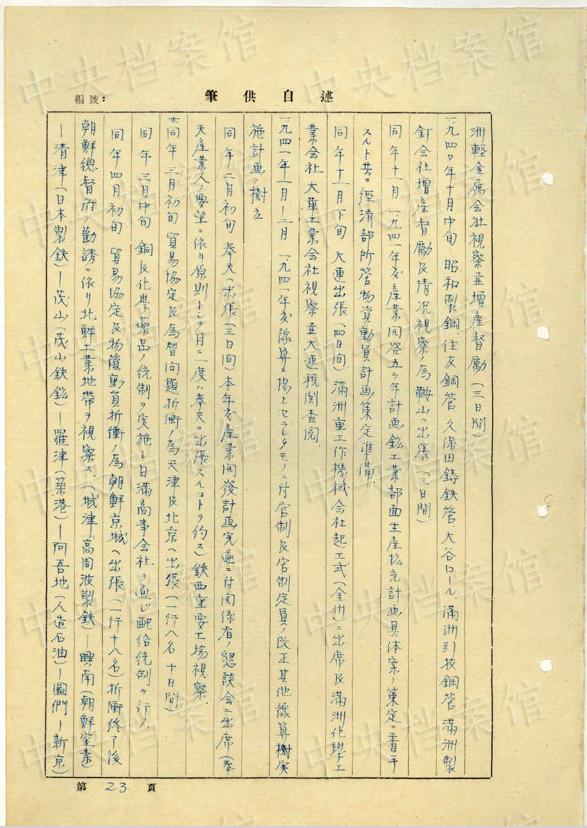 中央档案馆
筆供自述
編號：
洲輕金属会社視察並増産督励（三日間）
一九四〇年十月中旬 昭和製鋼住友鋼管 久保田鋳鉄管 大谷ロール 満洲引抜鋼管 満洲製
釘会社増産督励及情況視察ノ為鞍山ヘ出張（三日間）
同年十一月 一九四一年度産業開発五ヶ年計画鉱工業部面生産拡充計画具体案ノ策定ニ着手
スルト共ニ経済部所管物資動員計画策定準備
同年十一月下旬 大連出張（四日間）満洲重工作機械会社起工式（金州）ニ出席及満洲化学工
業会社 大華工業会社視察並大連税関査閲
一九四一年一月－二月 一九四一年度豫算ニ揚上セラレタモノニ付官制及官制定員ノ改正其他豫算樹実
施計画樹立
同年二月初旬 奉天ヘ出張（三日間）本年度産業開発計画完遂ニ付関係者ノ懇談会ニ出席（奉
天産業人ノ要望ニ依リ原則トシテ月ニ一度ハ奉天ニ出張スルコトヲ約ス）鉄西重要工場視察
同年三月初旬 貿易協定及為替問題折衝ノ為天津及北京ヘ出張（一行八名 十日間）
同年三月中旬 鋼及化学薬品ノ統制ヲ実施シ日満商事会社ヲ通ジ配給統制ヲ行フ
同年四月初旬 貿易協定及物資動員折衝ノ為朝鮮京城ヘ出張（一行十八名）折衝終了後
朝鮮総督府ノ勧誘ニ依リ北鮮工業地帯ヲ視察ス（城津（高周波製鉄）－興南（朝鮮窒素）
－清津（日本製鉄）－茂山（茂山鉄鉱）－羅津（築港）－阿吾地（人造石油）－圖們－新京）
第 23 頁